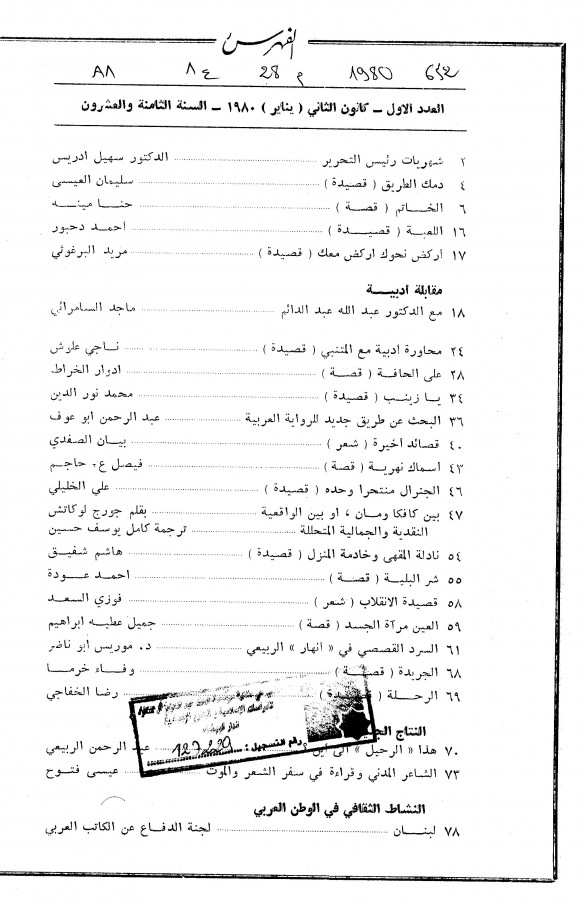 الفهرس
٨٨ ع ٨ م 28 1980
العدد الاول – كانون الثاني ( يناير ) ١٩٨٠ – السنة الثامنة والعشرون
٢ شهريات رئيس التحرير الدكتور سهيل ادريس
٤ دمك الطريق ( قصيدة ) سليمان العيسى
٦ الخاتم ( قصة ) حنا مينه
١٦ اللعبة ( قصيدة ) احمد دحبور
١٧ اركض نحوك اركض معك ( قصيدة ) مريد البرغوثي
مقابلة ادبية
١٨ مع الدكتور عبد الله عبد الدائم ماجد السامرائي
٢٤ محاورة ادبية مع المتنبي ( قصيدة ) ناجي علوش
٢٨ على الحافة ( قصة ) ادوار الخراط
٣٤ يا زينب ( قصيدة ) محمد نور الدين
٣٦ البحث عن طريق جديد للرواية العربية عبد الرحمن ابو عوف
٤٠ قصائد أخيرة ( شعر ) بيان الصفدي
٤٣ اسماك نهرية ( قصة ) فيصل ع. حاجم
٤٦ الجنرال منتحرا وحده ( قصيدة ) علي الخليلي
٤٧ بين كافكا ومان ، او بين الواقعية بقلم جورج لوكاتش
النقدية والجمالية المتحللة ترجمة كامل يوسف حسين
٥٤ نادلة المقهى وخادمة المنزل ( قصيدة ) هاشم شفيق
٥٥ شر البلية ( قصة ) احمد عودة
٥٨ قصيدة الانقلاب ( شعر ) فوزي السعد
٥٩ العين مرآة الجسد ( قصة ) جميل عطيه ابراهيم
٦١ السرد القصصي في « انهار » الربيعي د. موريس ابو ناضر
٦٨ الجريدة ( قصة ) وفاء خرما
٦٩ الرحلة ( قصيدة ) رضا الخفاجي
النتاج
٧٠ هذا « الرحيل » الى اين عبد الرحمن الربيعي
٧٣ الشاعر المدني وقراءة في سفر الشعر والموت عيسى فتوح
رقم التسجيل :
النشاط الثقافي في الوطن العربي
٧٨ لبنان لجنة الدفاع عن الكاتب العربي